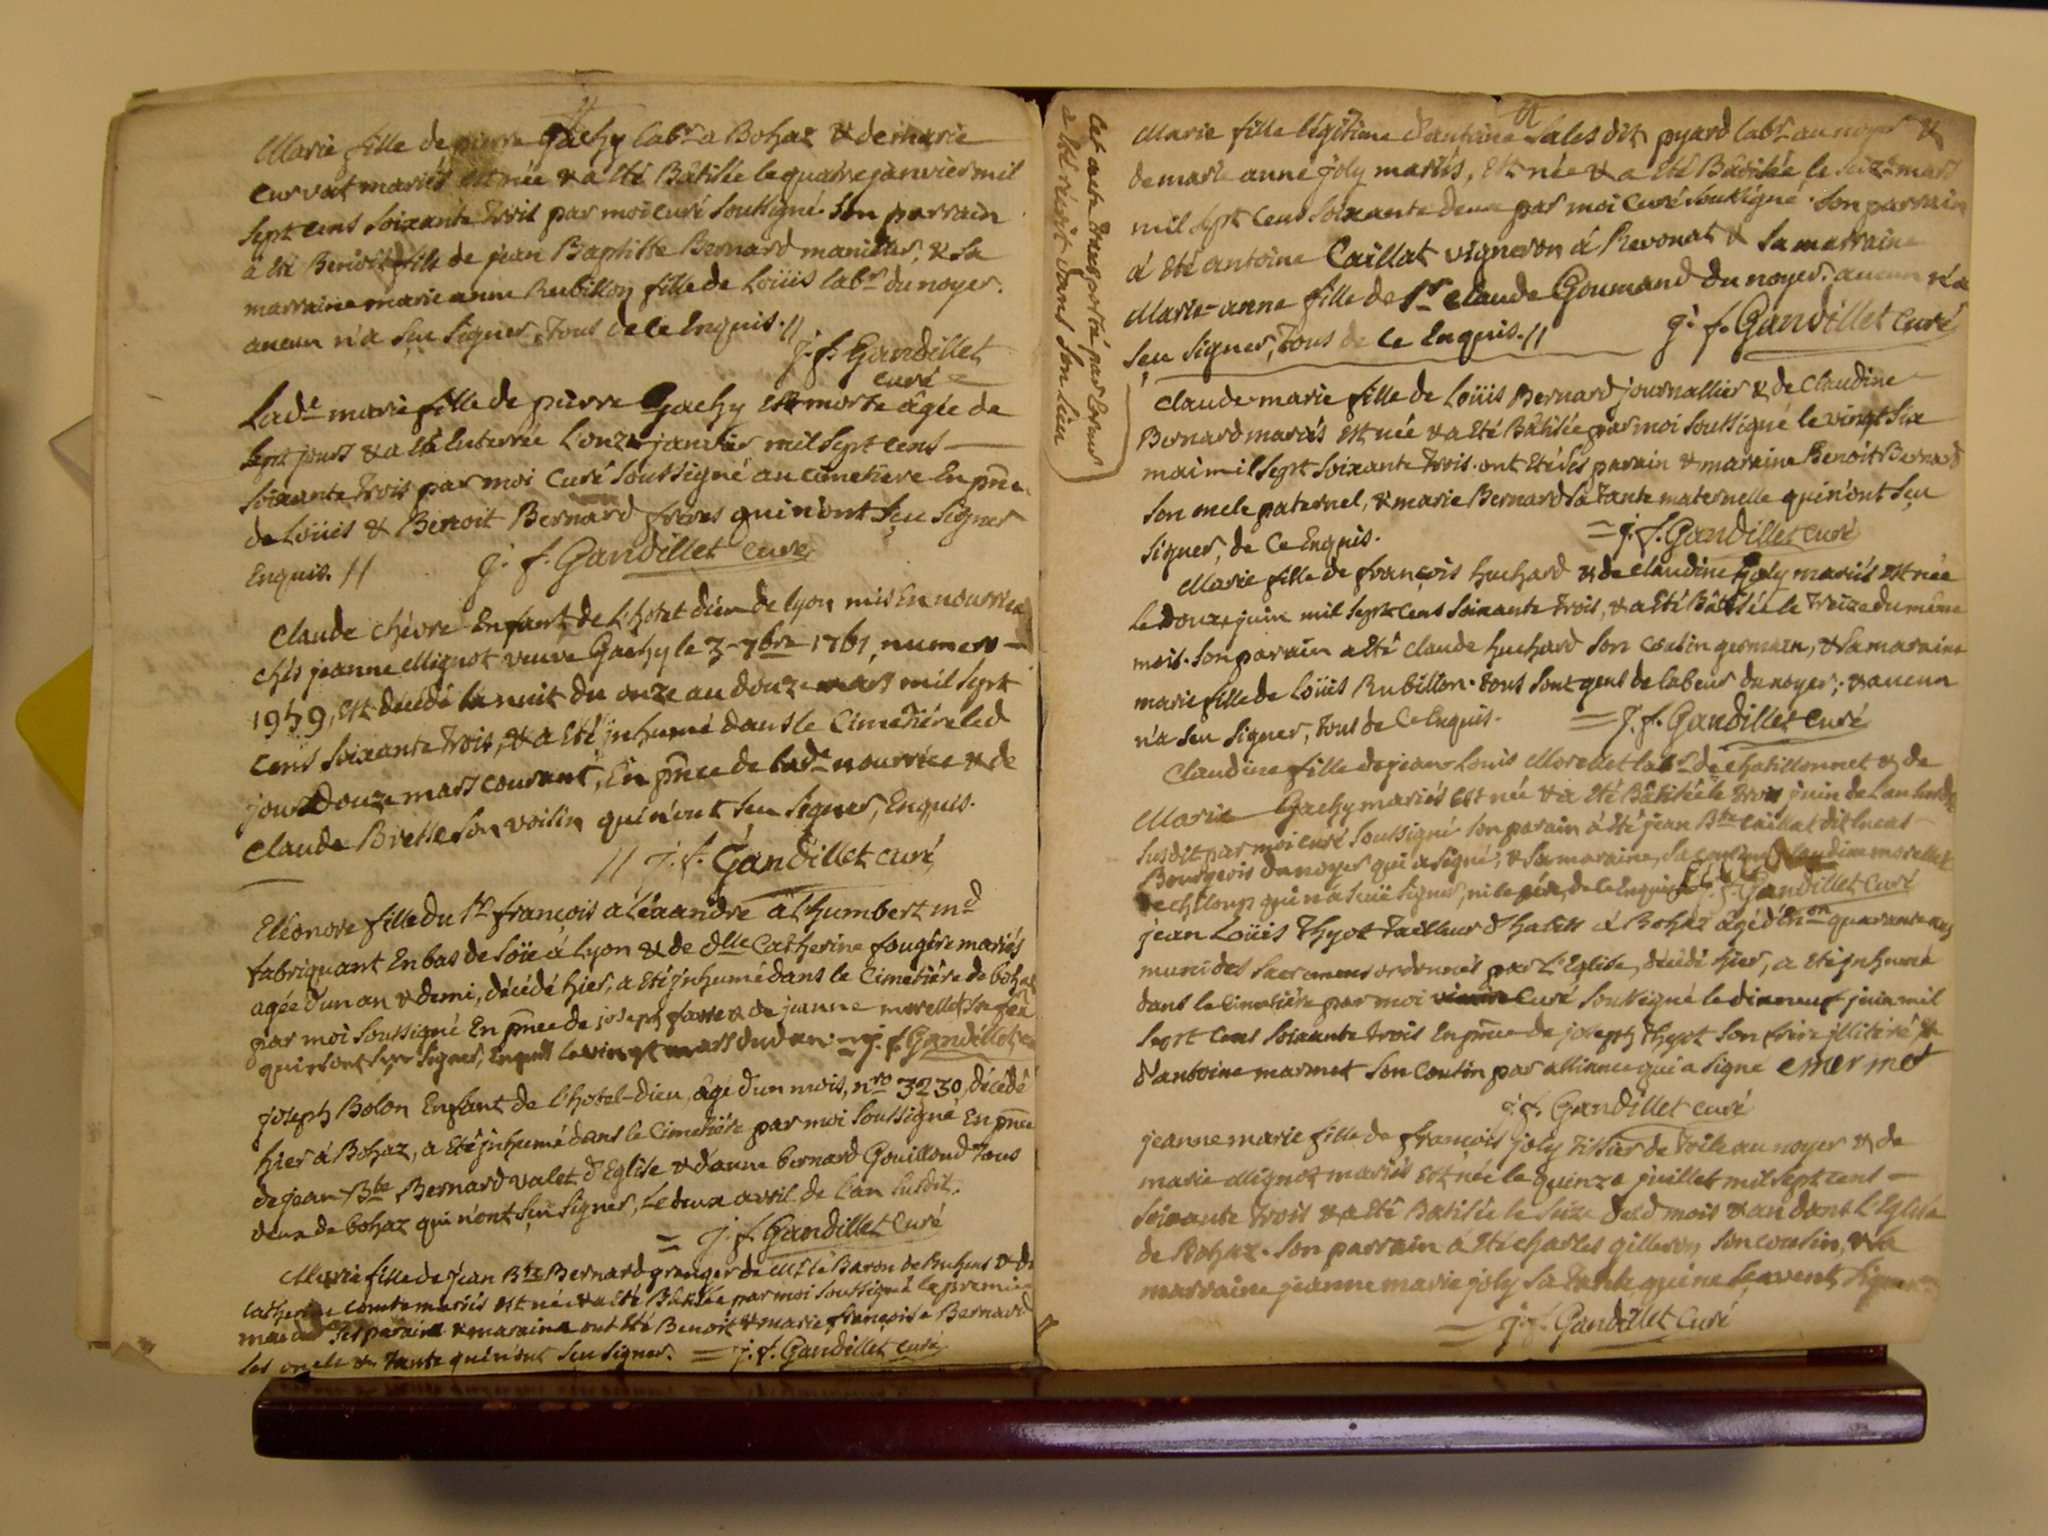 Marie fille de pierre Gachy labr a Bohaz & de marie
Curvat mariés est née & a Eté Bâtisée le quatre janvier mil
sept cens soixante trois par moi curé soussigné. Son parrain
a été Benoit fils de jean Baptiste Bernard manillier, & sa
marraine marie anne Rubillon fille de Loüis labr du noyer.
aucun n'a sçu signer, tous de ce Enquis. //
J. f. Gandillet
curé =
Lade marie fille de pierre Gachy est morte âgée de
sept jours & a été Enterrée l'onze janvier mil sept cens
soixante trois par moi Curé soussigné au cimetiere En pnce
de Loüis & Benoit Bernard freres qui n'ont sçu signer
Enquis. // J. f. Gandillet curé
Claude chévre Enfant de l'hotel dieu de lyon mis En nourrice
chés jeanne Mignot veuve Gachy le 3 - 7bre 1761, numero
1959, est décédé la nuit du onze au douze mars mil sept
cens soixante trois, & a Eté jnhumé dans le Cimetiére led
jour Douze mars courant, En pnce de lade nourrice & de
Claude Brette son voisin qui n'ont sçu signer, Enquis.
// J. f. Gandillet curé
Eléonore fille du Sr françois aléxandre a l'humbert md
fabriquant En bas de Soïe à Lyon & de dlle Catherine fougére mariés
agée d'un an & demi, décédé hier, a Eté jnhumé dans le Cimetiére de bohaz
par moi soussigné En pnce de joseph & de jeanne morellet
qui n'ont sçu signer, Enquis le vingt mars dudt an = J. f. Gandillet
joseph Bolon Enfant de l'hotel-dieu, agé d'un mois, nro 3230, décédé
hier à Bohaz, a Eté jnhumé dans le Cimetiére par moi soussigné En pnce
de jean-Bte Bernard valet d'Eglise & d'anne bernard Gouillond tous
deux de bohaz qui n'ont sçu signer, Le deux avril de l'an susdit.
= J. f. Gandillet Curé
Marie fille de Jean Bte Bernard granger de Mr le Baron de & de
catherine comte mariés est née & a Eté Bâtisée par moi soussigné le premier
mai ses parain & maraine ont Eté Benoit & marie françoise Bernard
ses oncle & tante qui n'ont sçu signer. = J. f. Gandillet curé
Cet acte transporté par Erreur
a Eté récrit dans son Lieu
Marie fille légitime d'antoine Sales dit pyard labr au noyer &
de marie anne joly mariés, Est née & a Eté Bâtisée le seize mars
mil sept cens soixante deux par moi Curé soussigné. Son parrain
a Eté antoine Caillat vigneron à Revonat & sa marraine
Marie-anne fille de Sr claude Goumand du noyer. aucun n'a
sçu signer, tous de ce Enquis. // J. f. Gandillet Curé
Claude-marie fille de Loüis Bernard journallier & de Claudine
Bernard mariés est née & a Eté Bâtisée par moi soussigné le vingt six
mai mil sept soixante trois. ont Eté ses parain & maraine Benoit Bernard
son oncle paternel, & marie Bernard sa tante maternelle qui n'ont sçu
signer, de Ce Enquis. = J. f. Gandillet curé
Marie fille de françois huchard & de claudine joly mariés est née
le douze juin mil sept cens soixante trois, & a Eté Bâtisée le treize du même
mois. Son parain a Eté claude huchard son cousin germain, & sa maraine
marie fille de Loüis Rubillon. tous sont gens de labeur du noyer, & aucun
n'a sçu signer, tous de Ce Enquis. = J. f. Gandillet curé
Claudine fille de jean-Louis Morellet labr de chatillonnet & de
Marie Gachy mariés est née & a Eté Bâtisée le trois juin de l'an
susdit par moi curé soussigné son parain a Eté jean Bte Caillat dit lucas
Bourgeois du noyer qui a signé, & sa maraine, sa cousine claudine morellet
qui n'a signer, ni le pére, de ce Enquis. J. f. Gandillet curé
jean Loüis Thyot tailleur d'habits à Bohaz âgé d'Enon quarante ans
muni des Sacremens ordonnés par l'Eglise, décédé hier, a Eté jnhumé
dans le Cimetiére par moi Curé soussigné le dixneuf juin mil
sept cens soixante trois En pnce de joseph Thyot son frére jllitéré &
d'antoine marmet son cousin par alliance qui a signé emermet
J. f. Gandillet curé
jeanne marie fille de françois joly tissier de toile au noyer & de
marie Mignot mariés est née le quinze juillet mil sept cent
soixante trois & a Eté Batisée le seize dud mois & an dans L'Eglise
de Bohaz. Son parrain a Eté charles gilleron son cousin, & sa
marraine jeanne marie joly sa tante qui ne sçavent signer
= J. f. Gandillet Curé